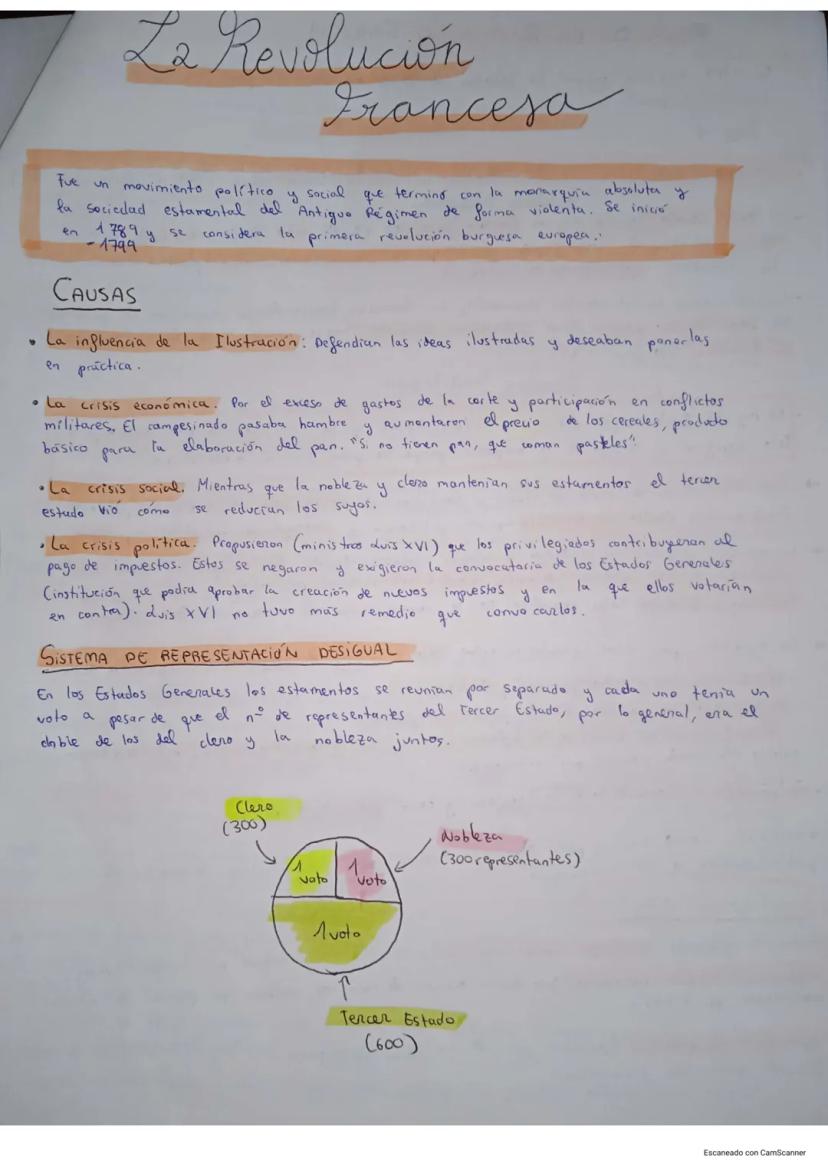 La Revolución
Francesa
Fue un movimiento político y social que terminó con la monarquía absoluta y
la sociedad estamental del Antiguo Régimen de forma violenta. Se inició
en 1789 y se considera la primera revolución burguesa europea.
-1799
CAUSAS
• La influencia de la Ilustración: Defendían las ideas ilustradas y deseaban ponerlas
en práctica.
• La crisis económica. Por el exceso de gastos de la corte y participación en conflictos
militares. El campesinado pasaba hambre y aumentaron el precio de los cereales, producto
básico para la elaboración del pan. "Si no tienen pan, que coman pasteles".
• La crisis social. Mientras que la nobleza y clero mantenían sus estamentos el tercer
estado vió como se reducían los suyos.
• La crisis política. Propusieron (ministros Luis XVI) que los privilegiados contribuyeran al
pago de impuestos. Estos se negaron y exigieron la convocatoria de los Estados Generales
(institución que podía aprobar la creación de nuevos impuestos y en la que ellos votarían
en contra). Luis XVI no tuvo más remedio que convocarlos.
SISTEMA DE REPRESENTACIÓN DESIGUAL
En los Estados Generales los estamentos se reunían por separado y cada uno tenía un
voto a pesar de que el nº de representantes del Tercer Estado, por lo general, era el
doble de los del clero y la nobleza juntos.
Clero
(300)
Nobleza
(300 representantes)
1 voto
1 voto
1 voto
Tercer Estado
(600)
Escaneado con CamScanner